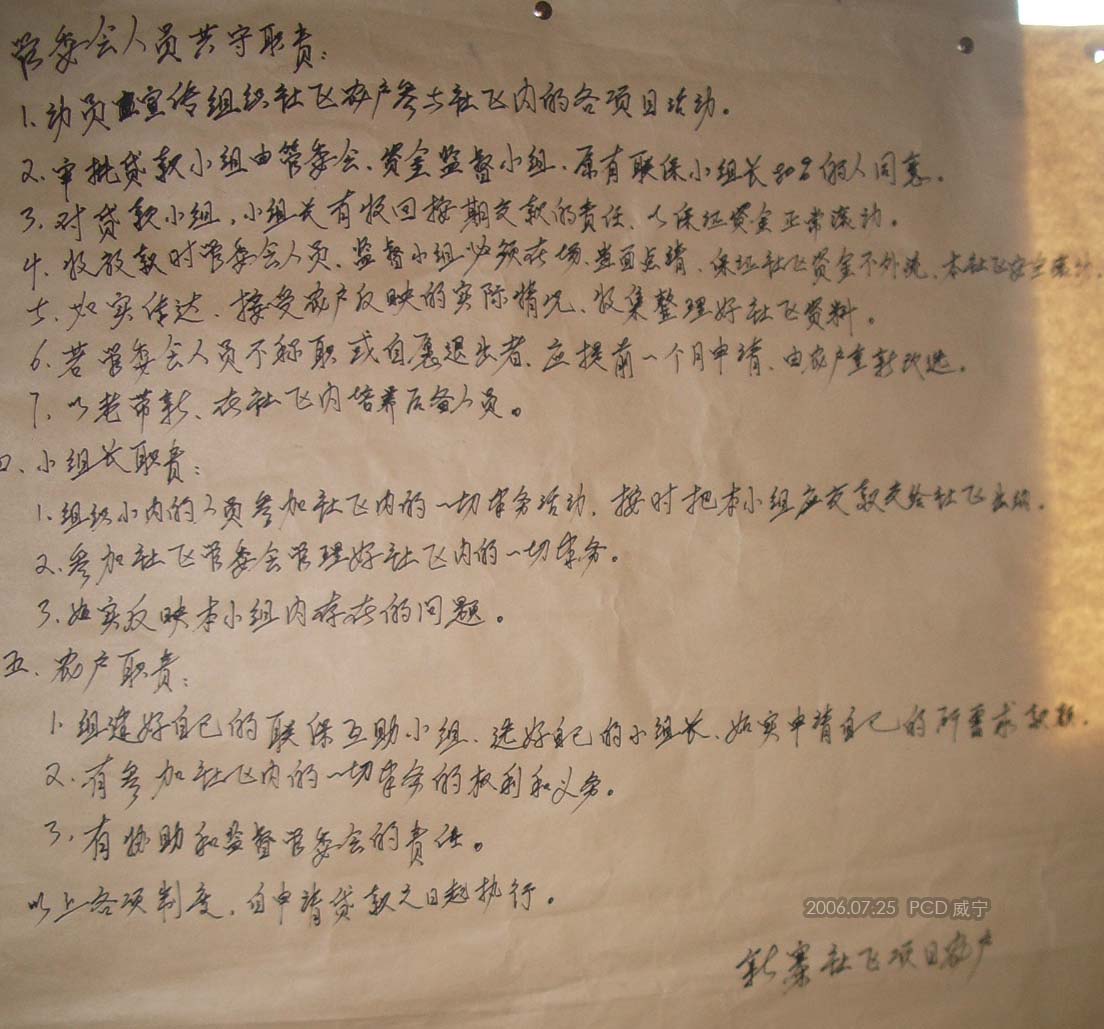 管委会人员共守职责：
1.动员宣传组织社区农户参与社区内的各项目活动。
2.审批贷款小组由管委会、资金监督小组、原有联保小组长80%的人同意。
3.对贷款小组，小组长有收回按期交款的责任、以保证资金正常流动。
4.收放款时管委会人员、监督小组必须在场、当面点清、保证社区资金不外流、本社区农户
5.如实传达、接受农户反映的实际情况、收集整理好社区资料。
6.若管委会人员不称职或自愿退出者、应提前一个月申请、由农户重新改选。
7.以老带新、在社区内培养后备人员。
四、小组长职责：
1.组织小内的人员参加社区内的一切事务活动，按时把本小组应交款交给社区出纳。
2.参加社区管委会管理好社区内的一切事务。
3.如实反映本小组内存在的问题。
五、农户职责：
1.组建好自己的联保互助小组、选好自己的小组长、如实申请自己的所需求款
2.有参加社区内的一切事务的权利和义务。
3.有协助和监督管委会的责任。
以上各项制度，自申请贷款之日起执行。
2006.07.25 PCD 威宁
新寨社区项目农户